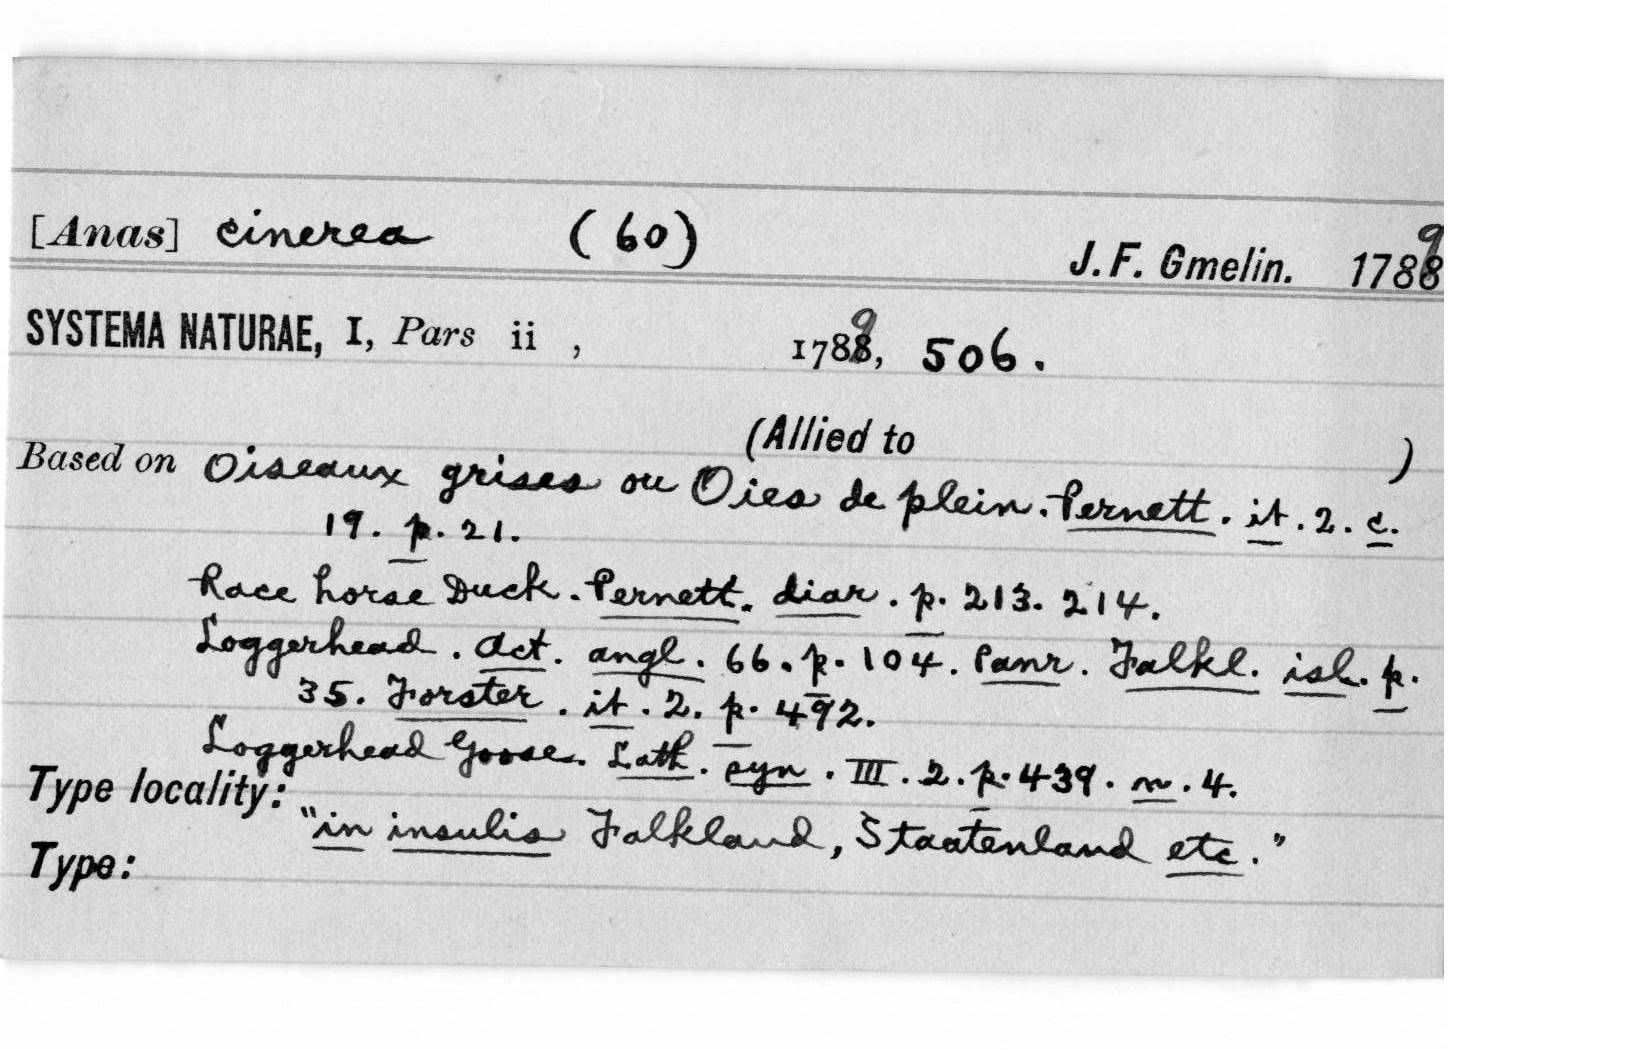 [Anas] cinerea (60)
J. F. Gmelin. 1789
SYSTEMA NATURAE, I, Pars ii , 1789, 506.
(Allied to )
Based on Oiseaux grises ou Oies de plein. Pernett. it. 2. c.
19. p. 21.
Race horse Duck. Pernett. diar. p. 213. 214.
Loggerhead. Act. angl. 66. p. 104. Panr. Falkl. isl. p.
35. Forster. it. 2. p. 492.
Loggerhead Goose. Lath. syn. III. 2. p. 439. n. 4.
Type locality:
"in insulis Falkland, Staatenland etc."
Type: